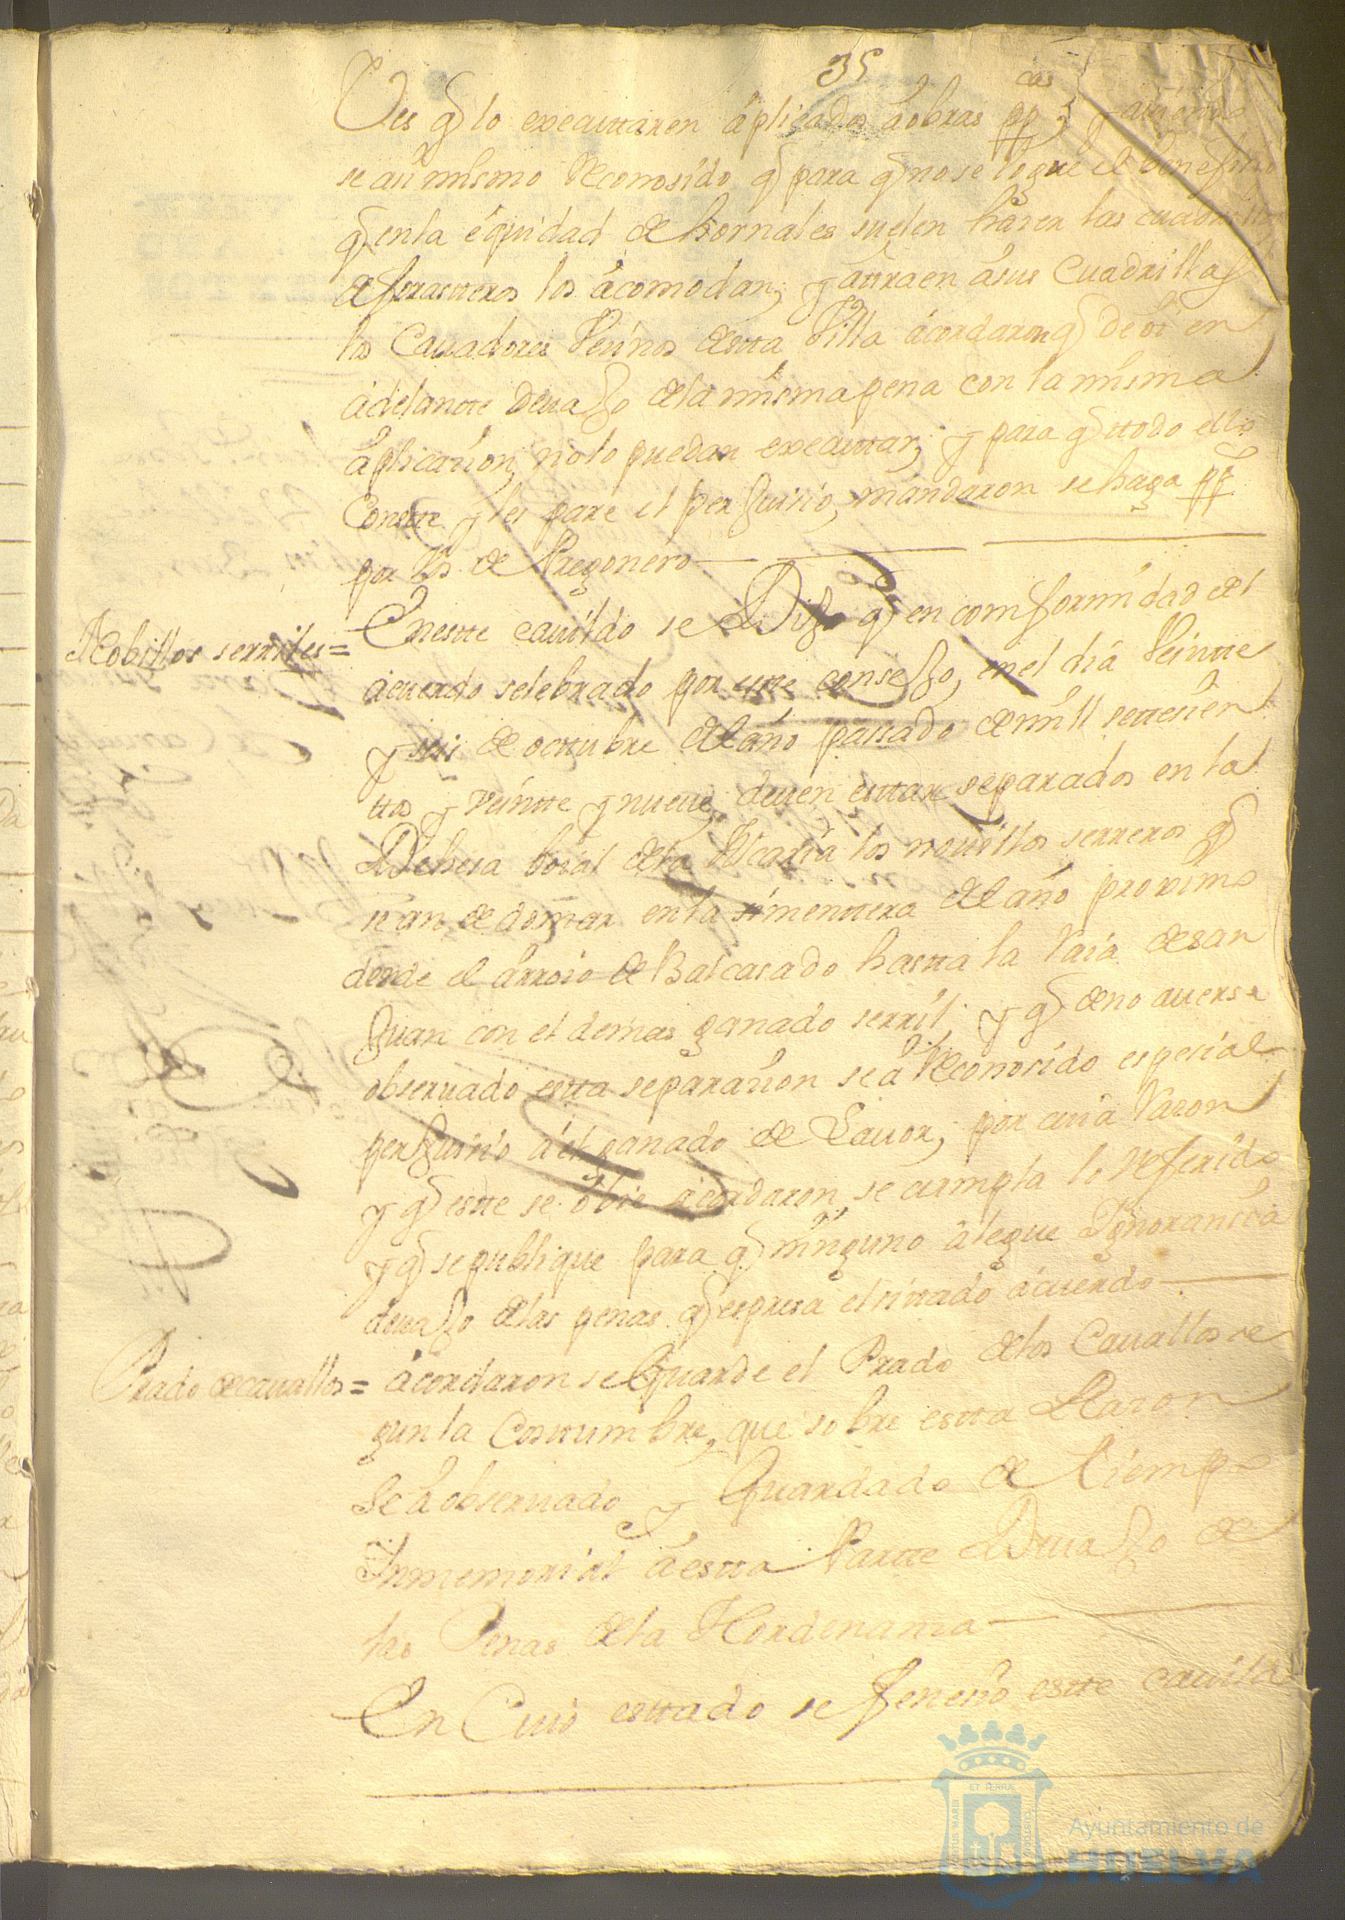 35
Ves q lo executtaren aplicados a obras pp cas y aviendo
se asi mismo reconosido q para q no se logre el benefisio
q en la equidad de hornales suelen haser las cuadrillas
de forastteros los acomodan, y attraen a sus cuadrillas
los Cavadores Vesinos destta Villa acordaron q de oi en
adelantte devajo de la misma pena con la misma
aplicasion, no lo puedan executtar, y para q ttodo ello
Constte y les pare el perjuisio, mandaron se haga pp
por vos de Pregonero
Nobillos serriles =
En estte cavildo se Dijo q en comformidad del
acuerdo selebrado por estte consejo, en el dia Veintte
y seis de octtubre del año passado de mill settesien
ttos y veintte y nueve, deven esttar separados en la
Dehesa boial de la Alcaria los novillos serreros q
se an de domar en la simenttera del año proximo
desde el arroio de Balcasado hastta la raia de san
Juan con el demas ganado serril, y q de no averse
observado estta separasion se a Reconosido espesial
perjuisio a el ganado de Lavor, por cuia Razon
y q estte se obie acordaron, se cumpla lo referido
y q se publique para q ninguno alegue Ygnoransia
devajo de las penas q espresa el sittado acuerdo
Prado de cavallos =
acordaron se Guarde el Prado de los Cavallos se
gun la Costtumbre, que sobre estta Razon
se a observado y Guardado de tiempo
Ynmemorial a estta Partte Devajo de
las Penas de la Hordenansa
En Cuio esttado se fenesio estte cavildo
Ayuntamiento de
HUELVA